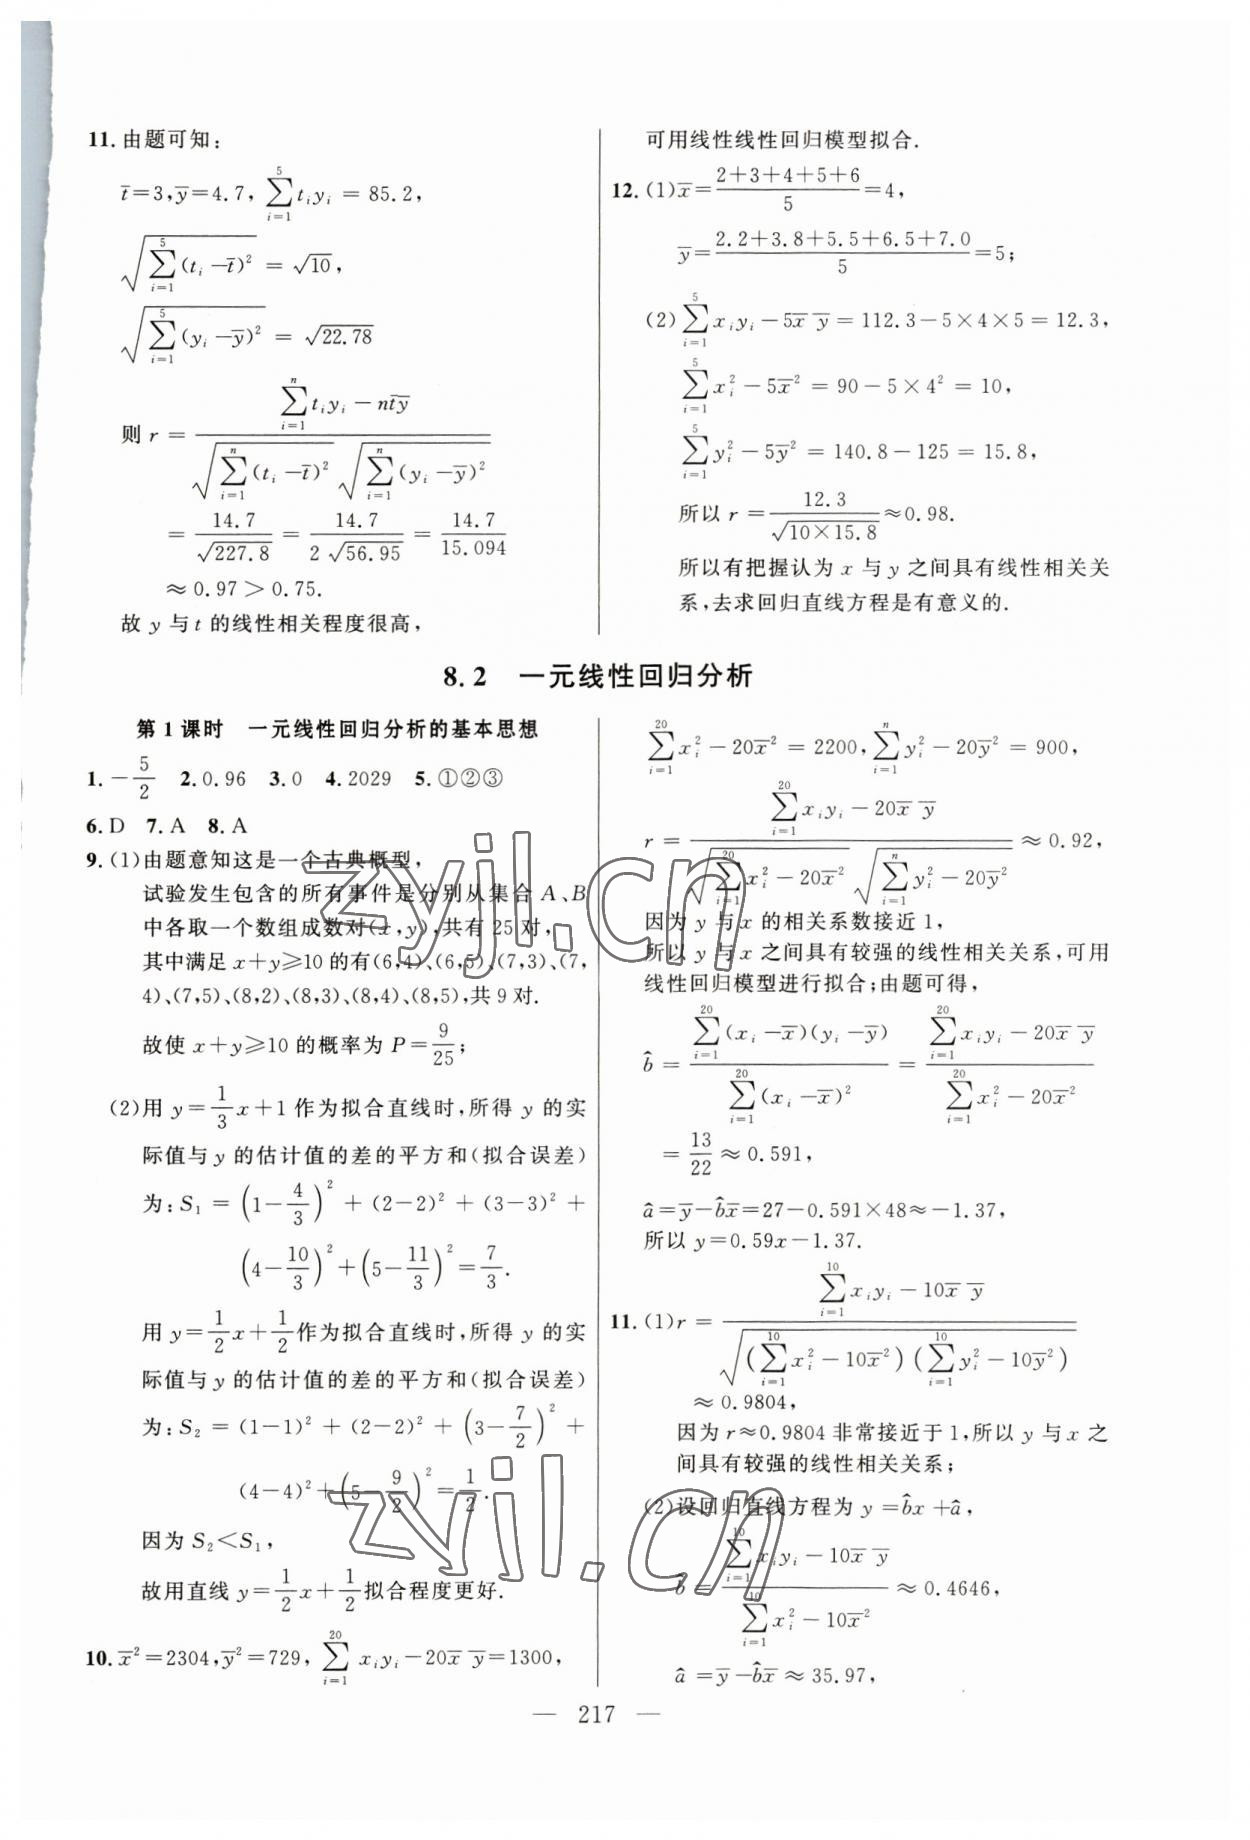 11.由题可知:
t̄=3,ȳ=4.7,∑_{i=1}^{5} t_i y_i = 85.2,
√(∑_{i=1}^{5}(t_i−t̄)²) = √10,
√(∑_{i=1}^{5}(y_i−ȳ)²) = √22.78
则 r = (∑_{i=1}^{n} t_i y_i − n t̄ȳ)/(√(∑_{i=1}^{n}(t_i−t̄)²) √(∑_{i=1}^{n}(y_i−ȳ)²))
= 14.7/√227.8 = 14.7/(2√56.95) = 14.7/15.094
≈0.97>0.75.
故 y 与 t 的线性相关程度很高,
可用线性线性回归模型拟合.
12.(1)x̄=(2+3+4+5+6)/5=4,
ȳ=(2.2+3.8+5.5+6.5+7.0)/5=5;
(2)∑_{i=1}^{5} x_i y_i−5x̄ ȳ=112.3−5×4×5=12.3,
∑_{i=1}^{5} x_i²−5x̄²=90−5×4²=10,
∑_{i=1}^{5} y_i²−5ȳ²=140.8−125=15.8,
所以 r=12.3/√(10×15.8)≈0.98.
所以有把握认为 x 与 y 之间具有线性相关关
系,去求回归直线方程是有意义的.
8.2 一元线性回归分析
第1课时 一元线性回归分析的基本思想
1.−5/2 2.0.96 3.0 4.2029 5.①②③
6.D 7.A 8.A
9.(1)由题意知这是一个古典概型,
试验发生包含的所有事件是分别从集合 A、B
中各取一个数组成数对(x,y),共有25对,
其中满足 x+y≥10的有(6,4)、(6,5)、(7,3)、(7,
4)、(7,5)、(8,2)、(8,3)、(8,4)、(8,5),共9对.
故使 x+y≥10的概率为 P=9/25;
(2)用 y=1/3x+1作为拟合直线时,所得 y 的实
际值与 y 的估计值的差的平方和(拟合误差)
为:S₁=(1−4/3)²+(2−2)²+(3−3)²+
(4−10/3)²+(5−11/3)²=7/3.
用 y=1/2x+1/2作为拟合直线时,所得 y 的实
际值与 y 的估计值的差的平方和(拟合误差)
为:S₂=(1−1)²+(2−2)²+(3−7/2)²+
(4−4)²+(5−9/2)²=1/2.
因为 S₂<S₁,
故用直线 y=1/2x+1/2拟合程度更好.
10.x̄²=2304,ȳ²=729,∑_{i=1}^{20} x_i y_i−20x̄ ȳ=1300,
∑_{i=1}^{20} x_i²−20x̄²=2200,∑_{i=1}^{n} y_i²−20ȳ²=900,
r=(∑_{i=1}^{20} x_i y_i−20x̄ ȳ)/(√(∑_{i=1}^{20} x_i²−20x̄²) √(∑_{i=1}^{n} y_i²−20ȳ²))≈0.92,
因为 y 与 x 的相关系数接近1,
所以 y 与 x 之间具有较强的线性相关关系,可用
线性回归模型进行拟合;由题可得,
b̂=(∑_{i=1}^{20}(x_i−x̄)(y_i−ȳ))/(∑_{i=1}^{20}(x_i−x̄)²)=(∑_{i=1}^{20} x_i y_i−20x̄ ȳ)/(∑_{i=1}^{20} x_i²−20x̄²)
=13/22≈0.591,
â=ȳ−b̂x̄=27−0.591×48≈−1.37,
所以 y=0.59x−1.37.
11.(1)r=(∑_{i=1}^{10} x_i y_i−10x̄ ȳ)/√((∑_{i=1}^{10} x_i²−10x̄²)(∑_{i=1}^{10} y_i²−10ȳ²))
≈0.9804,
因为 r≈0.9804非常接近于1,所以 y 与 x 之
间具有较强的线性相关关系;
(2)设回归直线方程为 y=b̂x+â,
b̂=(∑_{i=1}^{10} x_i y_i−10x̄ ȳ)/(∑_{i=1}^{10} x_i²−10x̄²)≈0.4646,
â=ȳ−b̂x̄≈35.97,
— 217 —
zyjl.cn
zyjl.cn